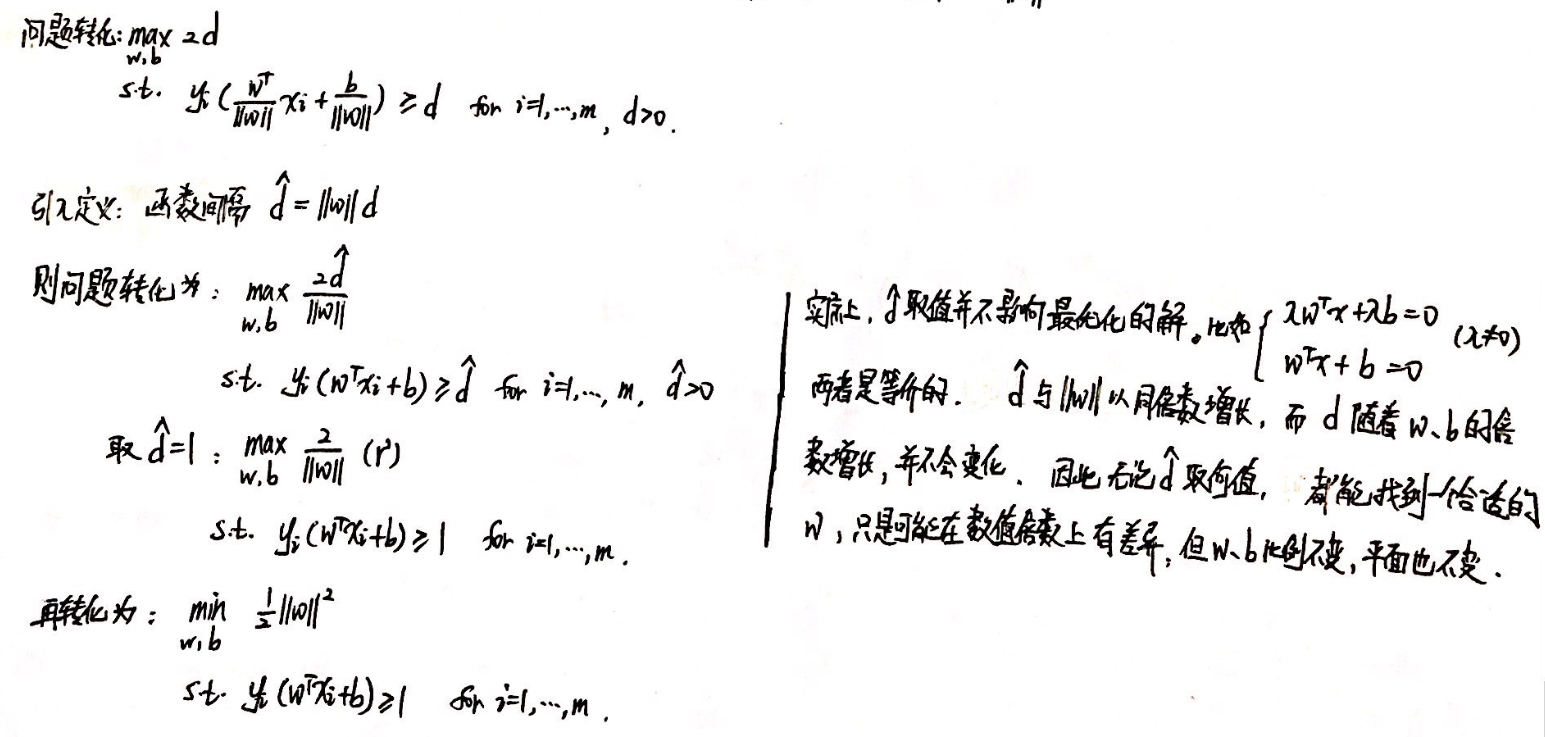 问题转化: max 2d
w,b
s.t. yᵢ( wᵀ/||w|| xᵢ + b/||w|| ) ≥ d for i=1,…,m, d>0.
引入定义: 函数间隔 d̂ = ||w|| d
则问题转化为: max 2d̂/||w||
w,b
s.t. yᵢ(wᵀxᵢ+b) ≥ d̂ for i=1,…,m, d̂>0
取 d̂=1 : max 2/||w||
w,b
s.t. yᵢ(wᵀxᵢ+b) ≥ 1 for i=1,…,m.
再转化为: min 1/2 ||w||²
w,b
s.t. yᵢ(wᵀxᵢ+b) ≥ 1 for i=1,…,m.
实际上, d̂ 取值并不影响最优化的解。比如 { λwᵀx+λb=0 (λ≠0)
wᵀx+b=0
两者是等价的. d̂ 与 ||w|| 以同倍数增长, 而 d 随着 w、b 的倍
数增长, 并不会变化. 因此无论 d̂ 取何值, 都能找到一个合适的
w, 只是可能在数值倍数上有差异, 但 w、b 比例不变, 平面也不变.